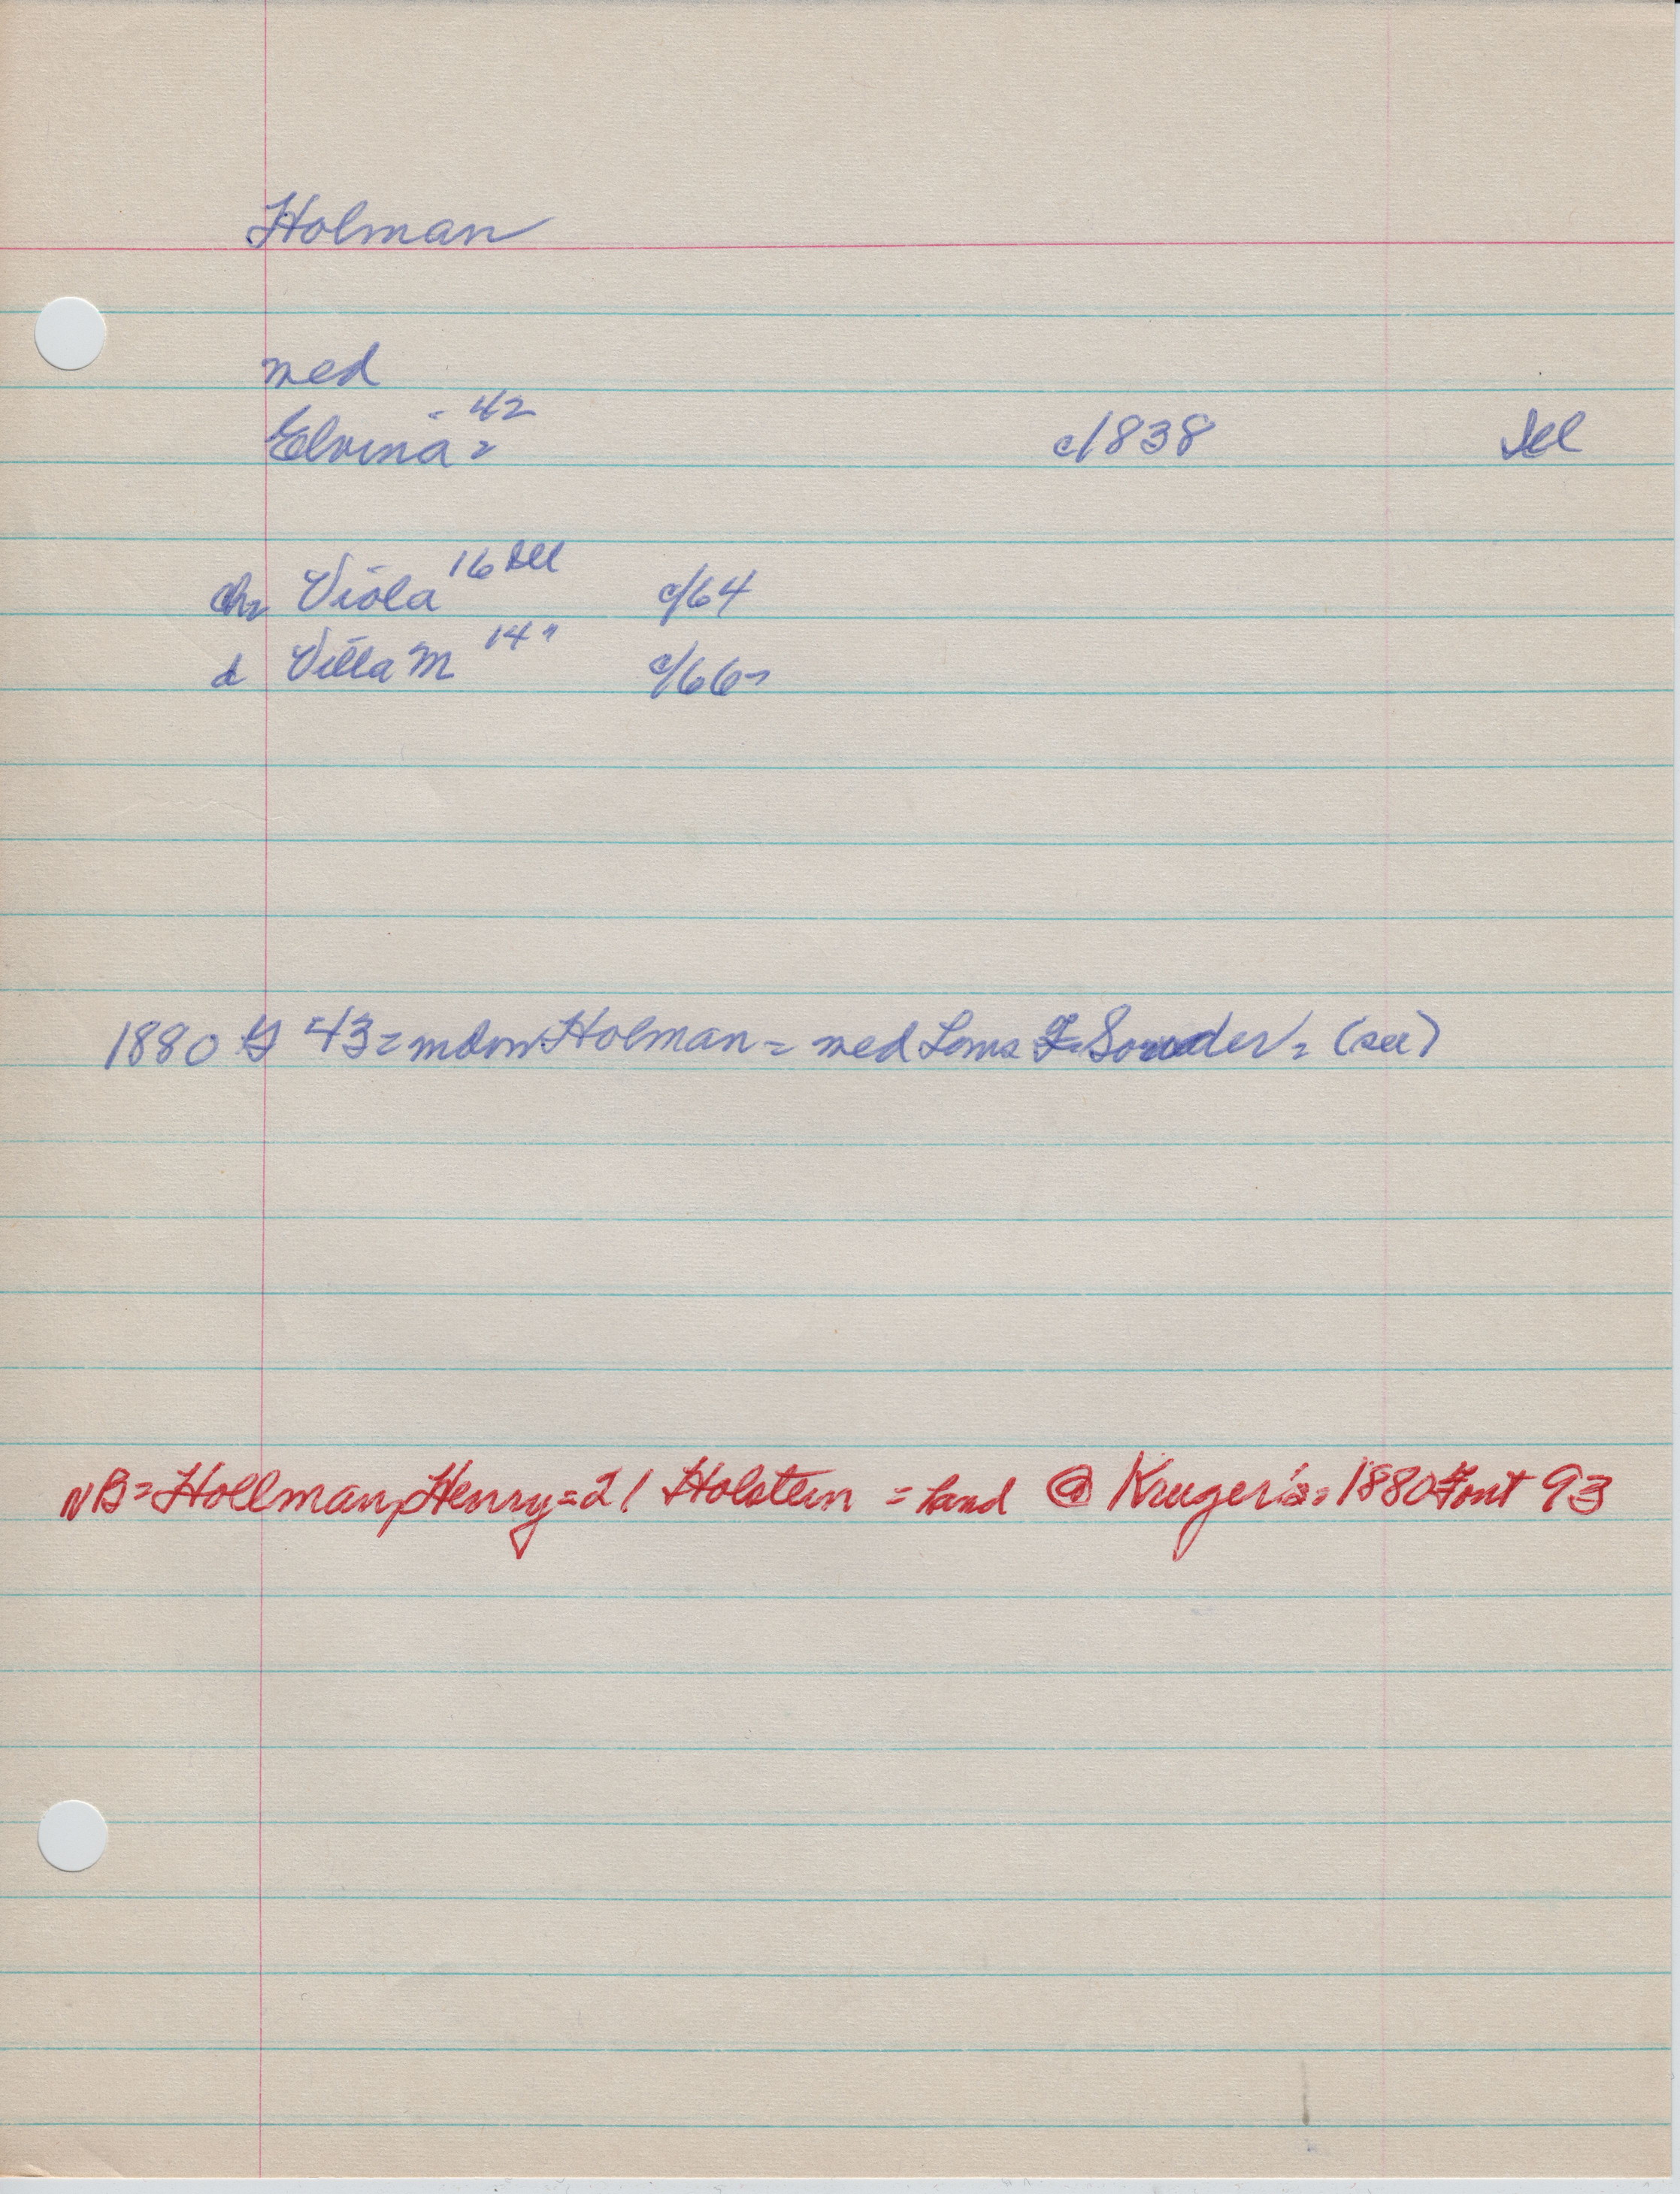 Holman
wed
Elvina - 42 c/1838 Del
ch = Viola 16 Del c/64
d Villa M 14 " c/66 =
1880 43 = Holman = wed F. Souder = (see)
NB = Hollman, Henry = 21 Holstein = hand @ Kruger's = 1880 Font 93